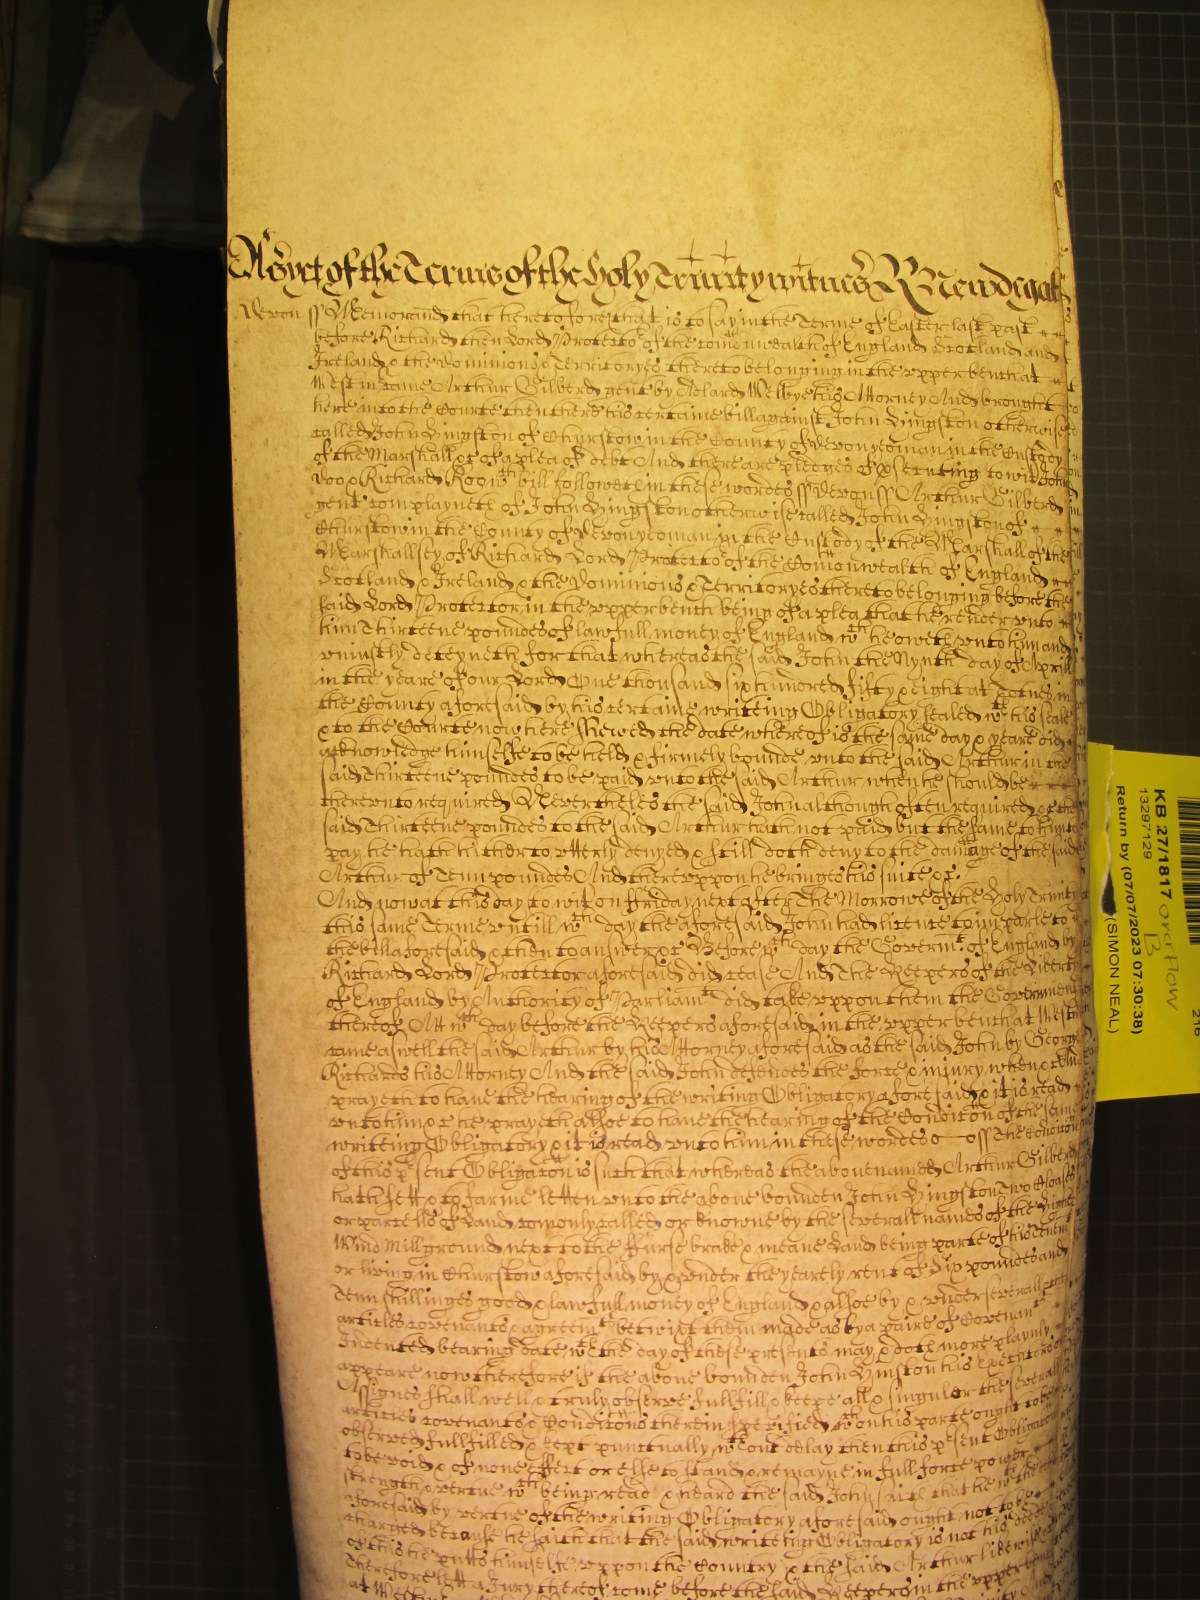 As yet of the Terme of the Holy Trinity witnes R Newdegat
Devon ss Memorand that heretofore that is to say in the Terme of Easter last past
before Richard then Lord Protector of the Comonwealth of England Scotland and
Ireland & the Dominions & Territoryes thereto belonging in the upper bench at
Westm came Arthur Gilberd gent by Welbye his Attorney And brought
here into the Courte then there his certaine bill against John Lyngston otherwise
called John Lyngston of Churstow in the County of Devon yeoman in the Custody
of the Marshall &c of a plea of debt And there are pledges of p'secuting to wit John
Doo & Richard Roo wch bill followeth in these wordes ss Devon ss Arthur Gilberd
gent complayneth of John Lyngston otherwise called John Lyngston of
Churstow in the County of Devon yeoman in the Custody of the Marshall of the
Marshallsey of Richard Lord Protector of the Comonwealth of England
Scotland & Ireland & the Dominions & Territoryes thereto belonging before the
said Lord Protector in the upper bench being of a plea that he render unto
him Thirteene poundes of lawfull money of England wch he oweth unto him and
uniustly deteyneth for that whereas the said John the Nynth day of Aprill
in the yeare of our Lord One thousand six hundred fifty & eight at Totnes in
the County aforesaid by his certaine writeing Obligatory sealed wth his seale
& to the Courte now here shewed the date whereof is the same day & yeare did
acknowledge himselfe to be held & firmely bounde unto the said Arthur in the
said Thirteene poundes to be paid unto the said Arthur when he should be
thereunto required Neverthelesse the said John although often required &c the
said Thirteene poundes to the said Arthur hath not paid but the same to him to
pay he hath hitherto utterly denyed & still doth deny to the damage of the said
Arthur of Tenn poundes And thereuppon he bringes his suite &c.
And now at this day to wit on Friday next after The Morrow of the Holy Trinity
this same Terme untill wch day the aforesaid John had licence to imparle to
the bill aforesaid & then to answer &c Before wch day the Governmt of England by
Richard Lord Protector aforesaid did cease And The Keepers of the Liberty
of England by Authority of Parliamt did take uppon them the Government
thereof Att wch day before the Keepers aforesaid in the upper bench at Westm
came aswell the said Arthur by his Attorney aforesaid as the said John by George
Richards his Attorney And the said John defendes the force & iniury when &c And
prayeth to have the hearing of the writing Obligatory aforesaid & it is read
unto him &c he prayeth allsoe to have the hearing of the Condicon of the same
writeing Obligatory & it is read unto him in these wordes The Condicon
of this p'sent Obligacon is such that whereas the abovenamed Arthur Gilberd
hath sett & to farme letten unto the above bounden John Lyngston Two Closes
or parcells of Land comonly called or knowne by the severall names of the
Wind Mill ground next to the Furse brake & meane Land being parte of his Tenemt
or living in Churstow aforesaid by & under the yearely rent of Six poundes and
Tenn shillinges good & lawfull money of England & allsoe by & under severall
articles covenants & agreemts betwixt them made as by a paire of Covenants
Indented bearing date wth the day of these presents may & doth more playnly
appeare now therefore if the above bounden John Lyngston his Executors or
Assignes shall well & truly observe fullfill & keepe all & singuler the severall
articles covenants & Condicons therein specified wch on his parte ought to be
observed fullfilled & kept punctually wthout delay then this p'sent Obligacon
to be void & of none effect or else to stand & remayne in full force power
strength & vertue wch being read & heard the said John saith that he wth the
aforesaid by vertue of the writeing Obligatory aforesaid ought not to be
charged because he saith that the said writeing Obligatory is not his deede And
of this he putts himselfe uppon the Country & the said Arthur likewise
Therefore lett a Jury thereof come before the said Keepers in the upper bench
at Westm
KB 27/1817 overflow
B
13297129
Return by (07/07/2023 07:30:38)
(SIMON NEAL)
216